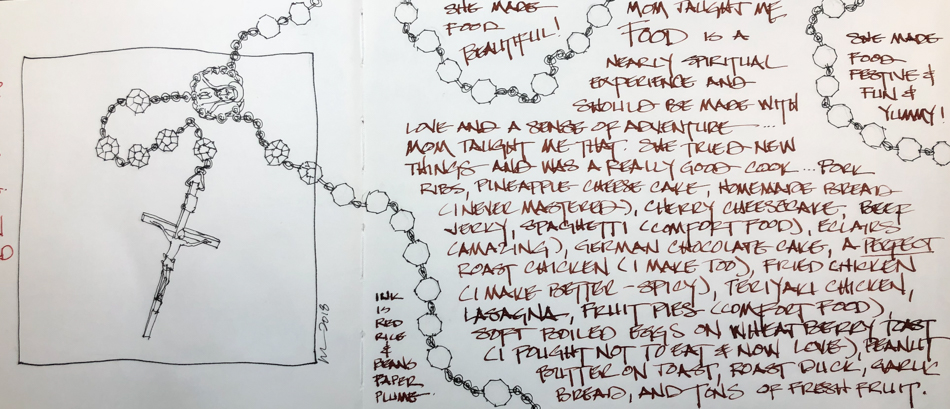 SHE MADE
FOOD
BEAUTIFUL!
MOM TAUGHT ME
FOOD IS A
NEARLY SPIRITUAL
EXPERIENCE AND
SHOULD BE MADE WITH
LOVE AND A SENSE OF ADVENTURE ...
MOM TAUGHT ME THAT. SHE TRIED NEW
THINGS AND WAS A REALLY GOOD COOK ... PORK
RIBS, PINEAPPLE CHEESE CAKE, HOMEMADE BREAD
(I NEVER MASTERED), CHERRY CHEESECAKE, BEEF
JERKY, SPAGHETTI (COMFORT FOOD), ECLAIRS
(AMAZING), GERMAN CHOCOLATE CAKE, A PERFECT
ROAST CHICKEN (I MAKE TOO), FRIED CHICKEN
(I MAKE BETTER - SPICY), TERIYAKI CHICKEN,
LASAGNA, FRUIT PIES (COMFORT FOOD),
SOFT BOILED EGGS ON WHEAT BERRY TOAST
(I FOUGHT NOT TO EAT & NOW LOVE), PEANUT
BUTTER ON TOAST, ROAST DUCK, GARLIC
BREAD, AND TONS OF FRESH FRUIT.
SHE MADE
FOOD
FESTIVE &
FUN &
YUMMY!
INK
IS
RED
RICE
&
BEANS
PAPER
PLUME
2018